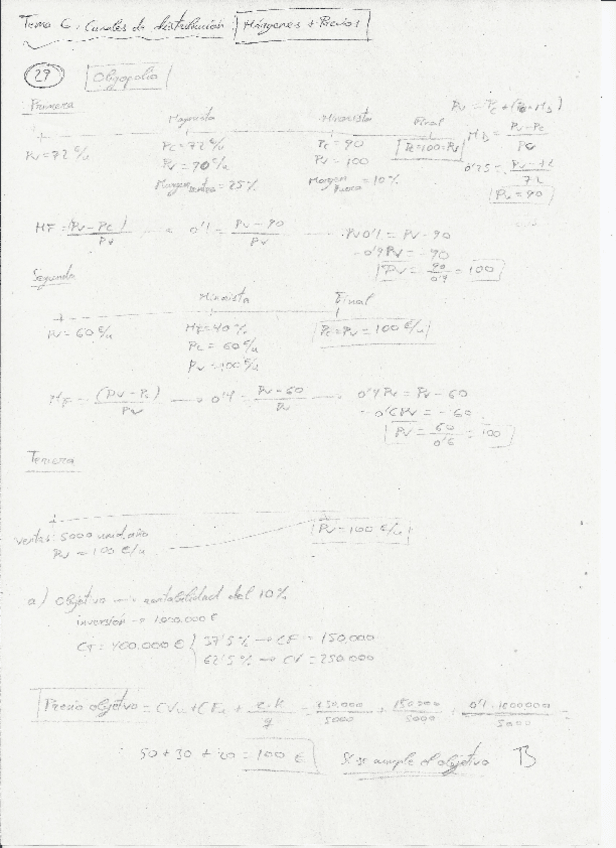 Tema 6: Canales de distribución Márgenes + Precios
29 Oligopolio
Primera
Mayorista Minorista Final
Pv = 72 €/u
Pc = 72 €/u
Pv = 90 €/u
Margen = 25%
Pc = 90
Pv = 100
Margen = 10%
Pc = 100 = Pv
Pv = Pc + (Pc · MB)
MB = Pv - Pc / Pc
0'25 = Pv - 72 / 72
Pv = 90
MF = (Pv - Pc) / Pv → 0'1 = Pv - 90 / Pv → Pv 0'1 = Pv - 90
- 0'9 Pv = - 90
Pv = 90 / 0'9 = 100
Segunda
Minorista Final
Pv = 60 €/u
MF = 40%
Pc = 60 €/u
Pv = 100 €/u
Pc = Pv = 100 €/u
MF = (Pv - Pc) / Pv → 0'4 = Pv - 60 / Pv → 0'4 Pv = Pv - 60
- 0'6 Pv = - 60
Pv = 60 / 0'6 = 100
Tercera
Ventas: 5000 unid. año
Pv = 100 €/u
Pv = 100 €/u
a) Objetivo → rentabilidad del 10%
inversión → 1.000.000 €
CT = 400.000 €
37'5% → CF = 150.000
62'5% → CV = 250.000
Precio objetivo = CVu + CFu + r·K / q = 250.000 / 5000 + 150.000 / 5000 + 0'1 · 1000000 / 5000 =
50 + 30 + 20 = 100 € Si se cumple el objetivo B